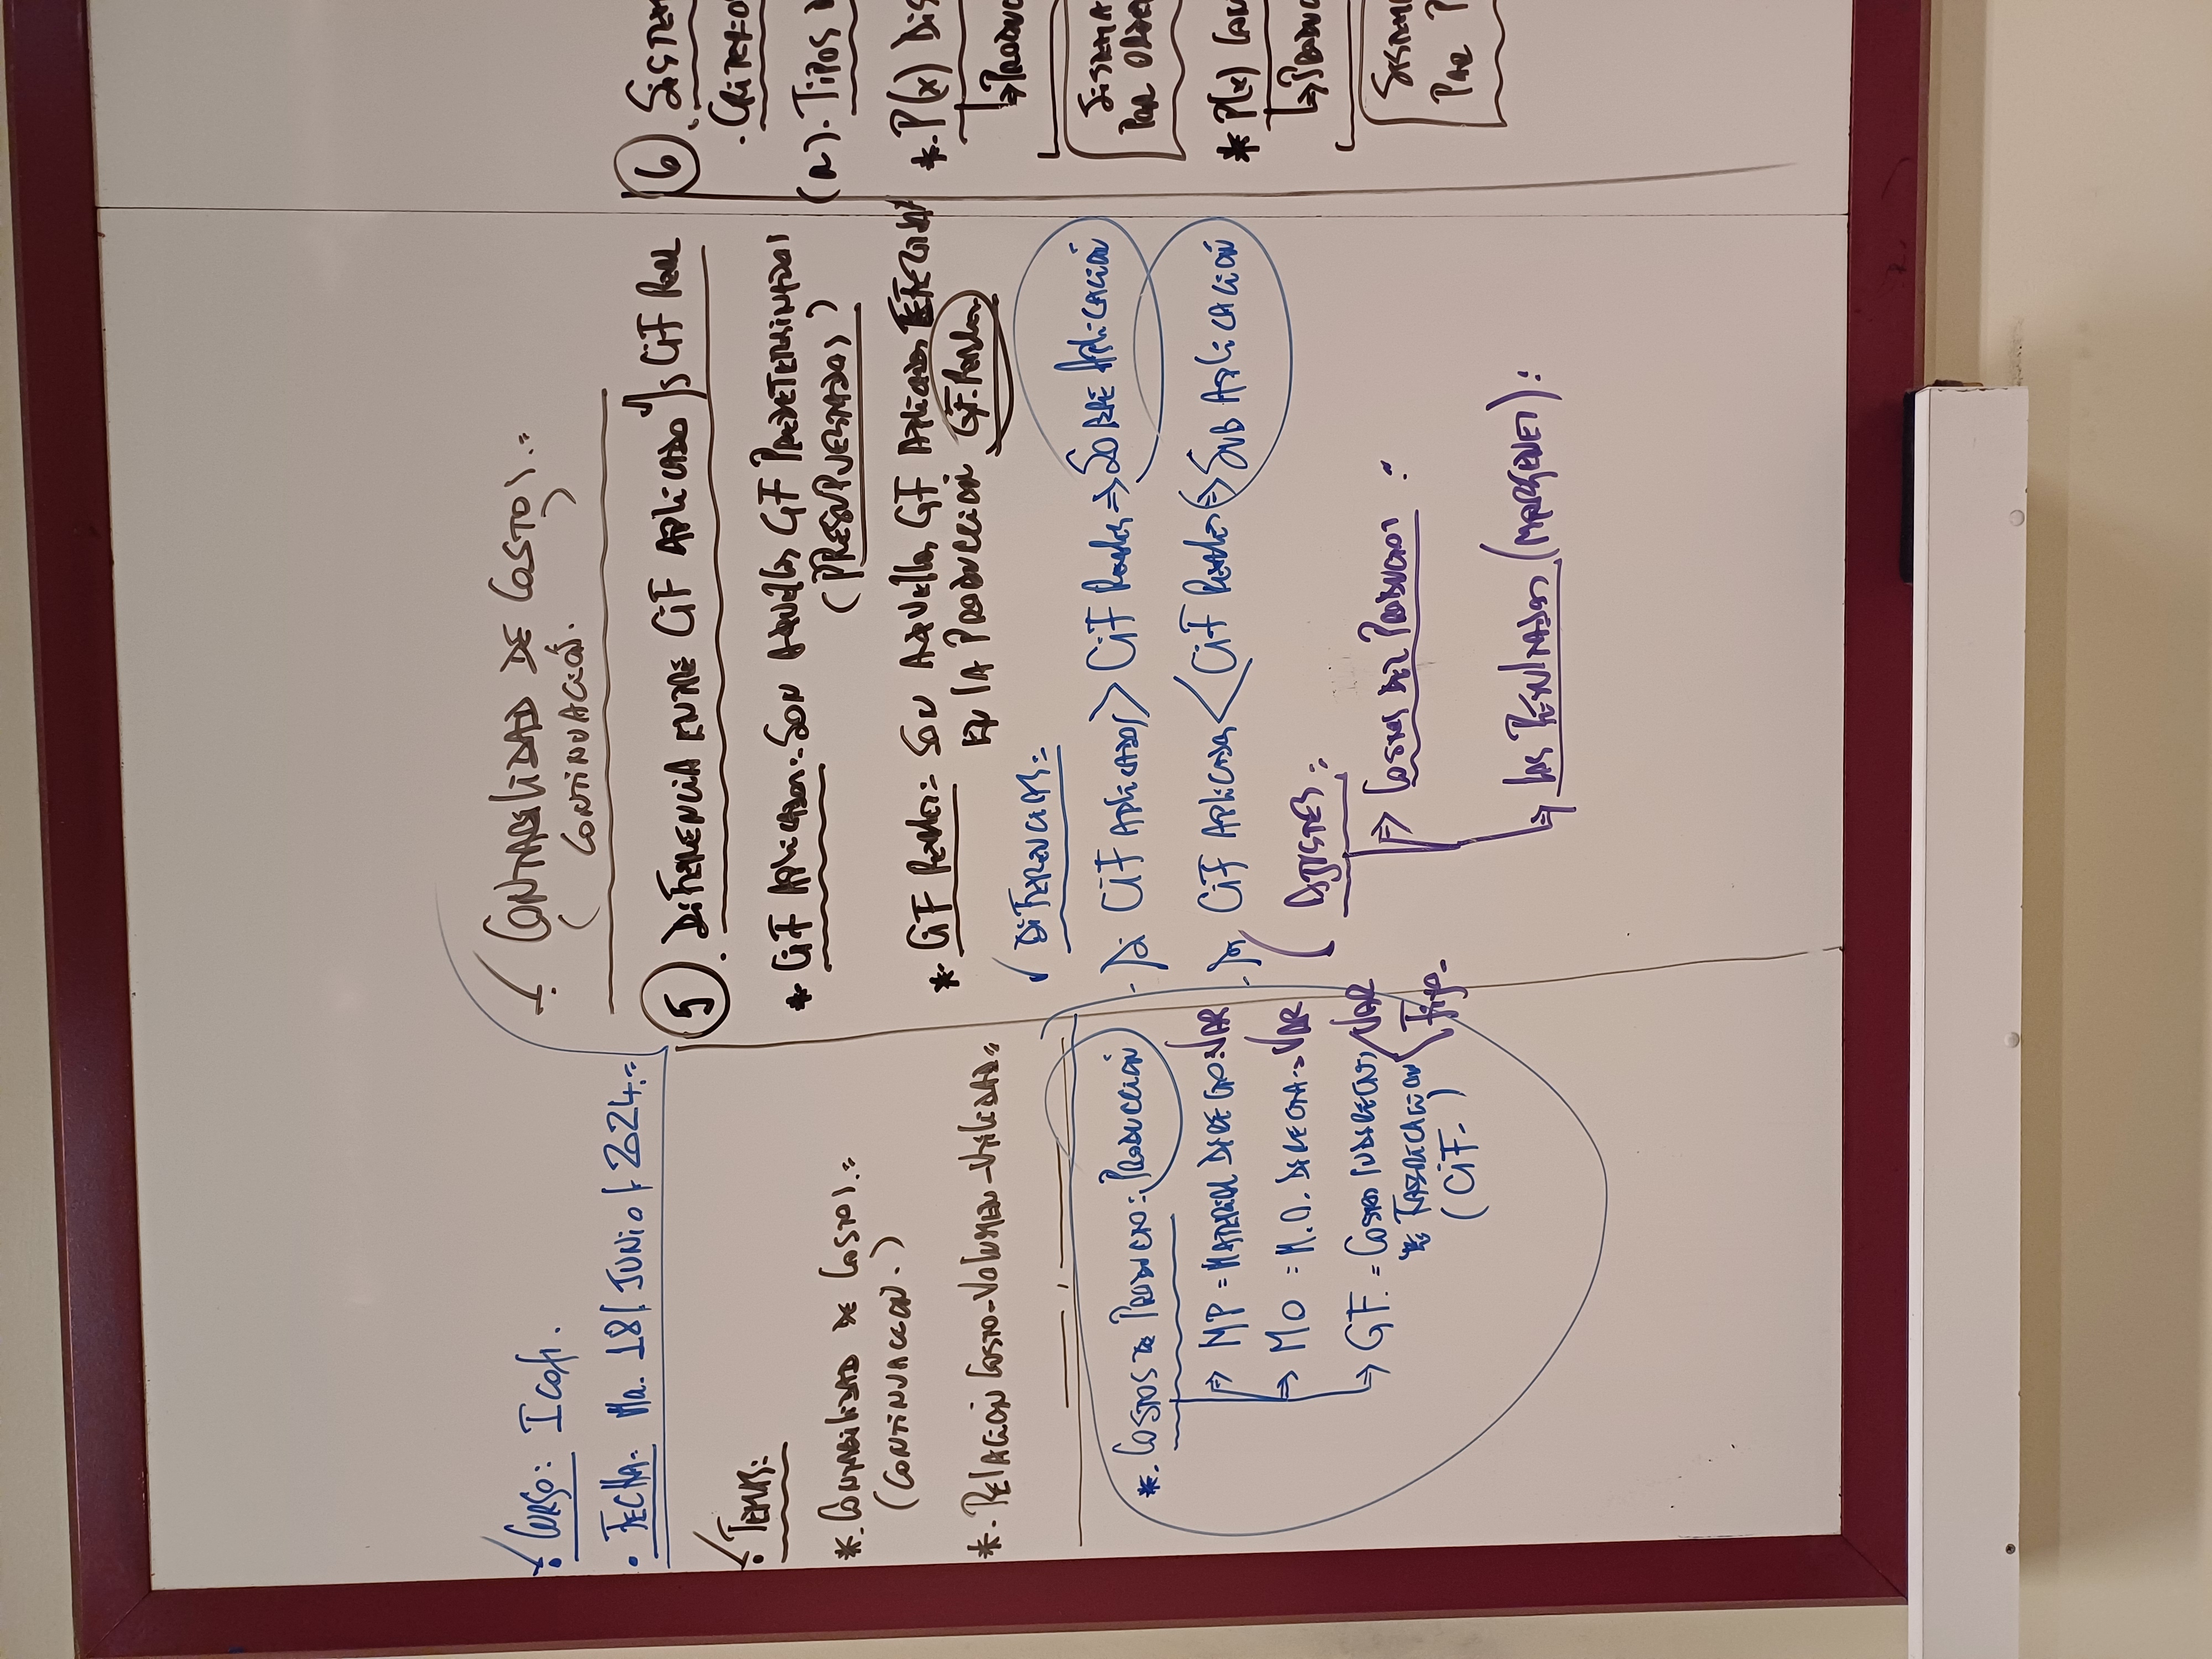 • CURSO: ICofi.
• FECHA: Ma. 18/JUNIO/2024.=
• TEMAS:
*. CONTABILIDAD DE COSTOS.=
(CONTINUACION.)
*. RELACIÓN COSTO-VOLUMEN-UTILIDAD=
*. COSTOS DE PRODUCTO: PRODUCCIÓN
→ MP = MATERIAL DIRECTO: VAR
→ MO = M.O. DIRECTA → VAR
→ GF. = COSTOS INDIRECTOS VAR
DE FABRICACION Fijo.
(CiF.)
CONTABILIDAD DE COSTOS.=
(CONTINUACIÓN.)
5. DIFERENCIA ENTRE CiF APLICADO V/S CiF REAL
* CiF APLICADOS: SON AQUELLOS GF PREDETERMINADOS
(PRESUPUESTADOS)
*. CiF REALES: SON AQUELLOS GF APLICADOS
EN LA PRODUCCIÓN GF. REALES
✓ DIFERENCIAS:
- Si CiF APLICADOS > CiF REALES ⇒ SOBRE APLICACIÓN
- Si CiF APLICADOS < CiF REALES ⇒ SUB APLICACIÓN
AJUSTES:
→ COSTOS DEL PRODUCTO :
→ LOS RESULTADOS (MARGENES):
6. SISTEM
. CRITERIO
(a). TIPOS D
*. P(x) DIS
→ PRODUC
SISTEMA
POR ORDE
* P(x) CON
→ PRODUC
SISTEM
POR P